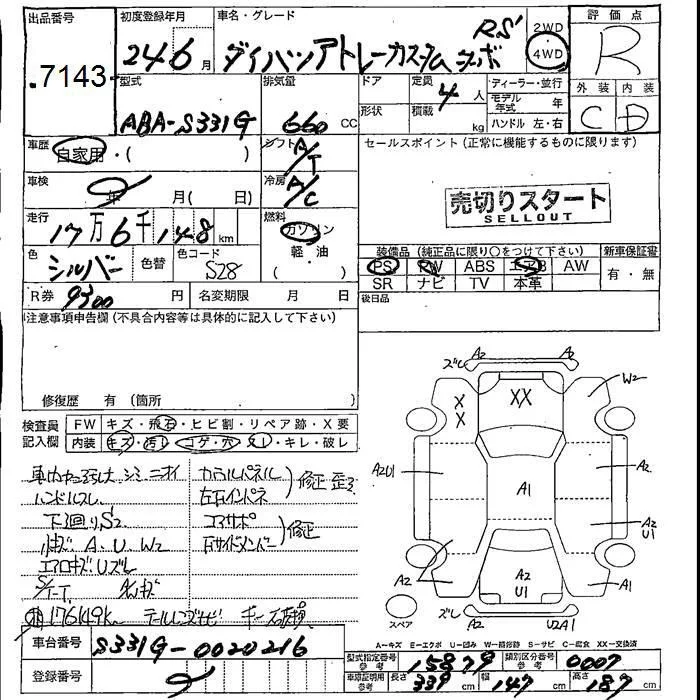 出品番号
.7143-
初度登録年月
24 6 月
車名・グレード
ダイハツアトレーカスタムターボ RS
2WD
4WD
評価点
R
外装 内装
C D
型式
ABA-S331G
排気量
660 CC
ドア
形状
定員
4 人
積載
kg
ディーラー・並行
モデル年式 年
ハンドル 左・右
車歴
自家用・( )
シフト
A/T
セールスポイント(正常に機能するものに限ります)
売切りスタート
SELLOUT
車検
年 月( 日)
冷房
A/C
走行
17万6千148km
燃料
ガソリン
軽・油
( )
色
シルバー
色替
色コード
S28
装備品(純正品に限り○をつけて下さい)
新車保証書
PS PW ABS エアB AW
有・無
SR ナビ TV 本革
R券
9300 円
名変期限 月 日
後日品
注意事項申告欄(不具合内容等は具体的に記入して下さい)
修復歴 有(箇所
検査員記入欄
FW キズ・飛石・ヒビ割・リペア跡・X要
内装 キズ・汚れ・コゲ・穴・スレ・キレ・破レ
シミ ニオイ
ハンドルスレ
下廻りS2
A、U、W2
エアロキズUズレ
176149K
ラジパネル
左右インパネ
修正 歪み
コアサポ
右サイドメンバー
修正
ズレ A2 A2
W2
XX
XX
A2U1
A2
A1
A2
U1
A2
A2
U1
A1
スペア
ズレ
U2A1
車台番号
S331G-0020216
登録番号
A-キズ E-エクボ U-凹み W-補修跡 S-サビ C-腐食 XX-交換済
型式指定番号 参考
15879
類別区分番号 参考
0007
車庫証明用 参考
長さ 339 cm
幅 147 cm
高さ 187 cm